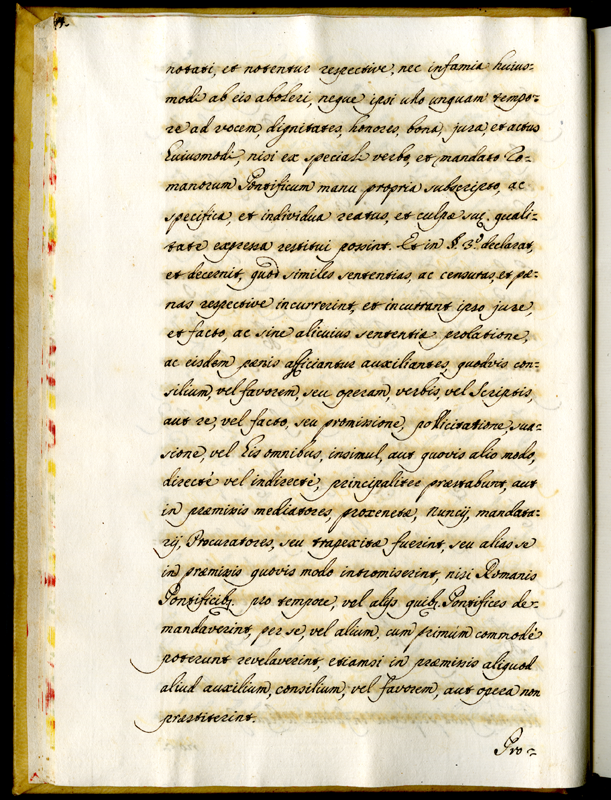 notati, et notentur respective, nec infamia huius=
modi ab eis aboleri, neque ipsi ullo unquam tempo=
re ad vocem, dignitates, honores, bona, jura, et actus
huiusmodi, nisi ex speciali verbo, et mandato Ro=
manorum Pontificum manu propria subscripto, ac
specifica, et individua reatus, et culpæ suę, quali=
tate expressa restitui possint. Et in §. 3.º declarat,
et decernit, quòd similes sententias, ac censuras, et pœ=
nas respective incurrerint, et incurrant ipso jure,
et facto, ac sine alicuius sententiæ prolatione,
ac eisdem pœnis afficiantur auxiliantes, quodvis con=
silium, vel favorem, seu operam, verbis, vel scriptis,
aut re, vel facto, seu promissione, pollicitatione, sua=
sione, vel his omnibus, insimul, aut quovis alio modo,
directè vel indirectè, principaliter præstabunt, aut
in præmissis mediatores, proxenetæ, nuncij, mandata=
rij, Procuratores, seu trapexitæ fuerint, seu alias se
in præmissis quovis modo intromiserint, nisi Romanis
Pontificibq. pro tempore, vel alijs quibq. Pontifices de=
mandaverint, per se, vel alium, cum primùm commodè
poterunt revelaverint, etiamsi in præmissis aliquod
aliud auxilium, consilium, vel favorem, aut opera non
præstiterint.
Pro=